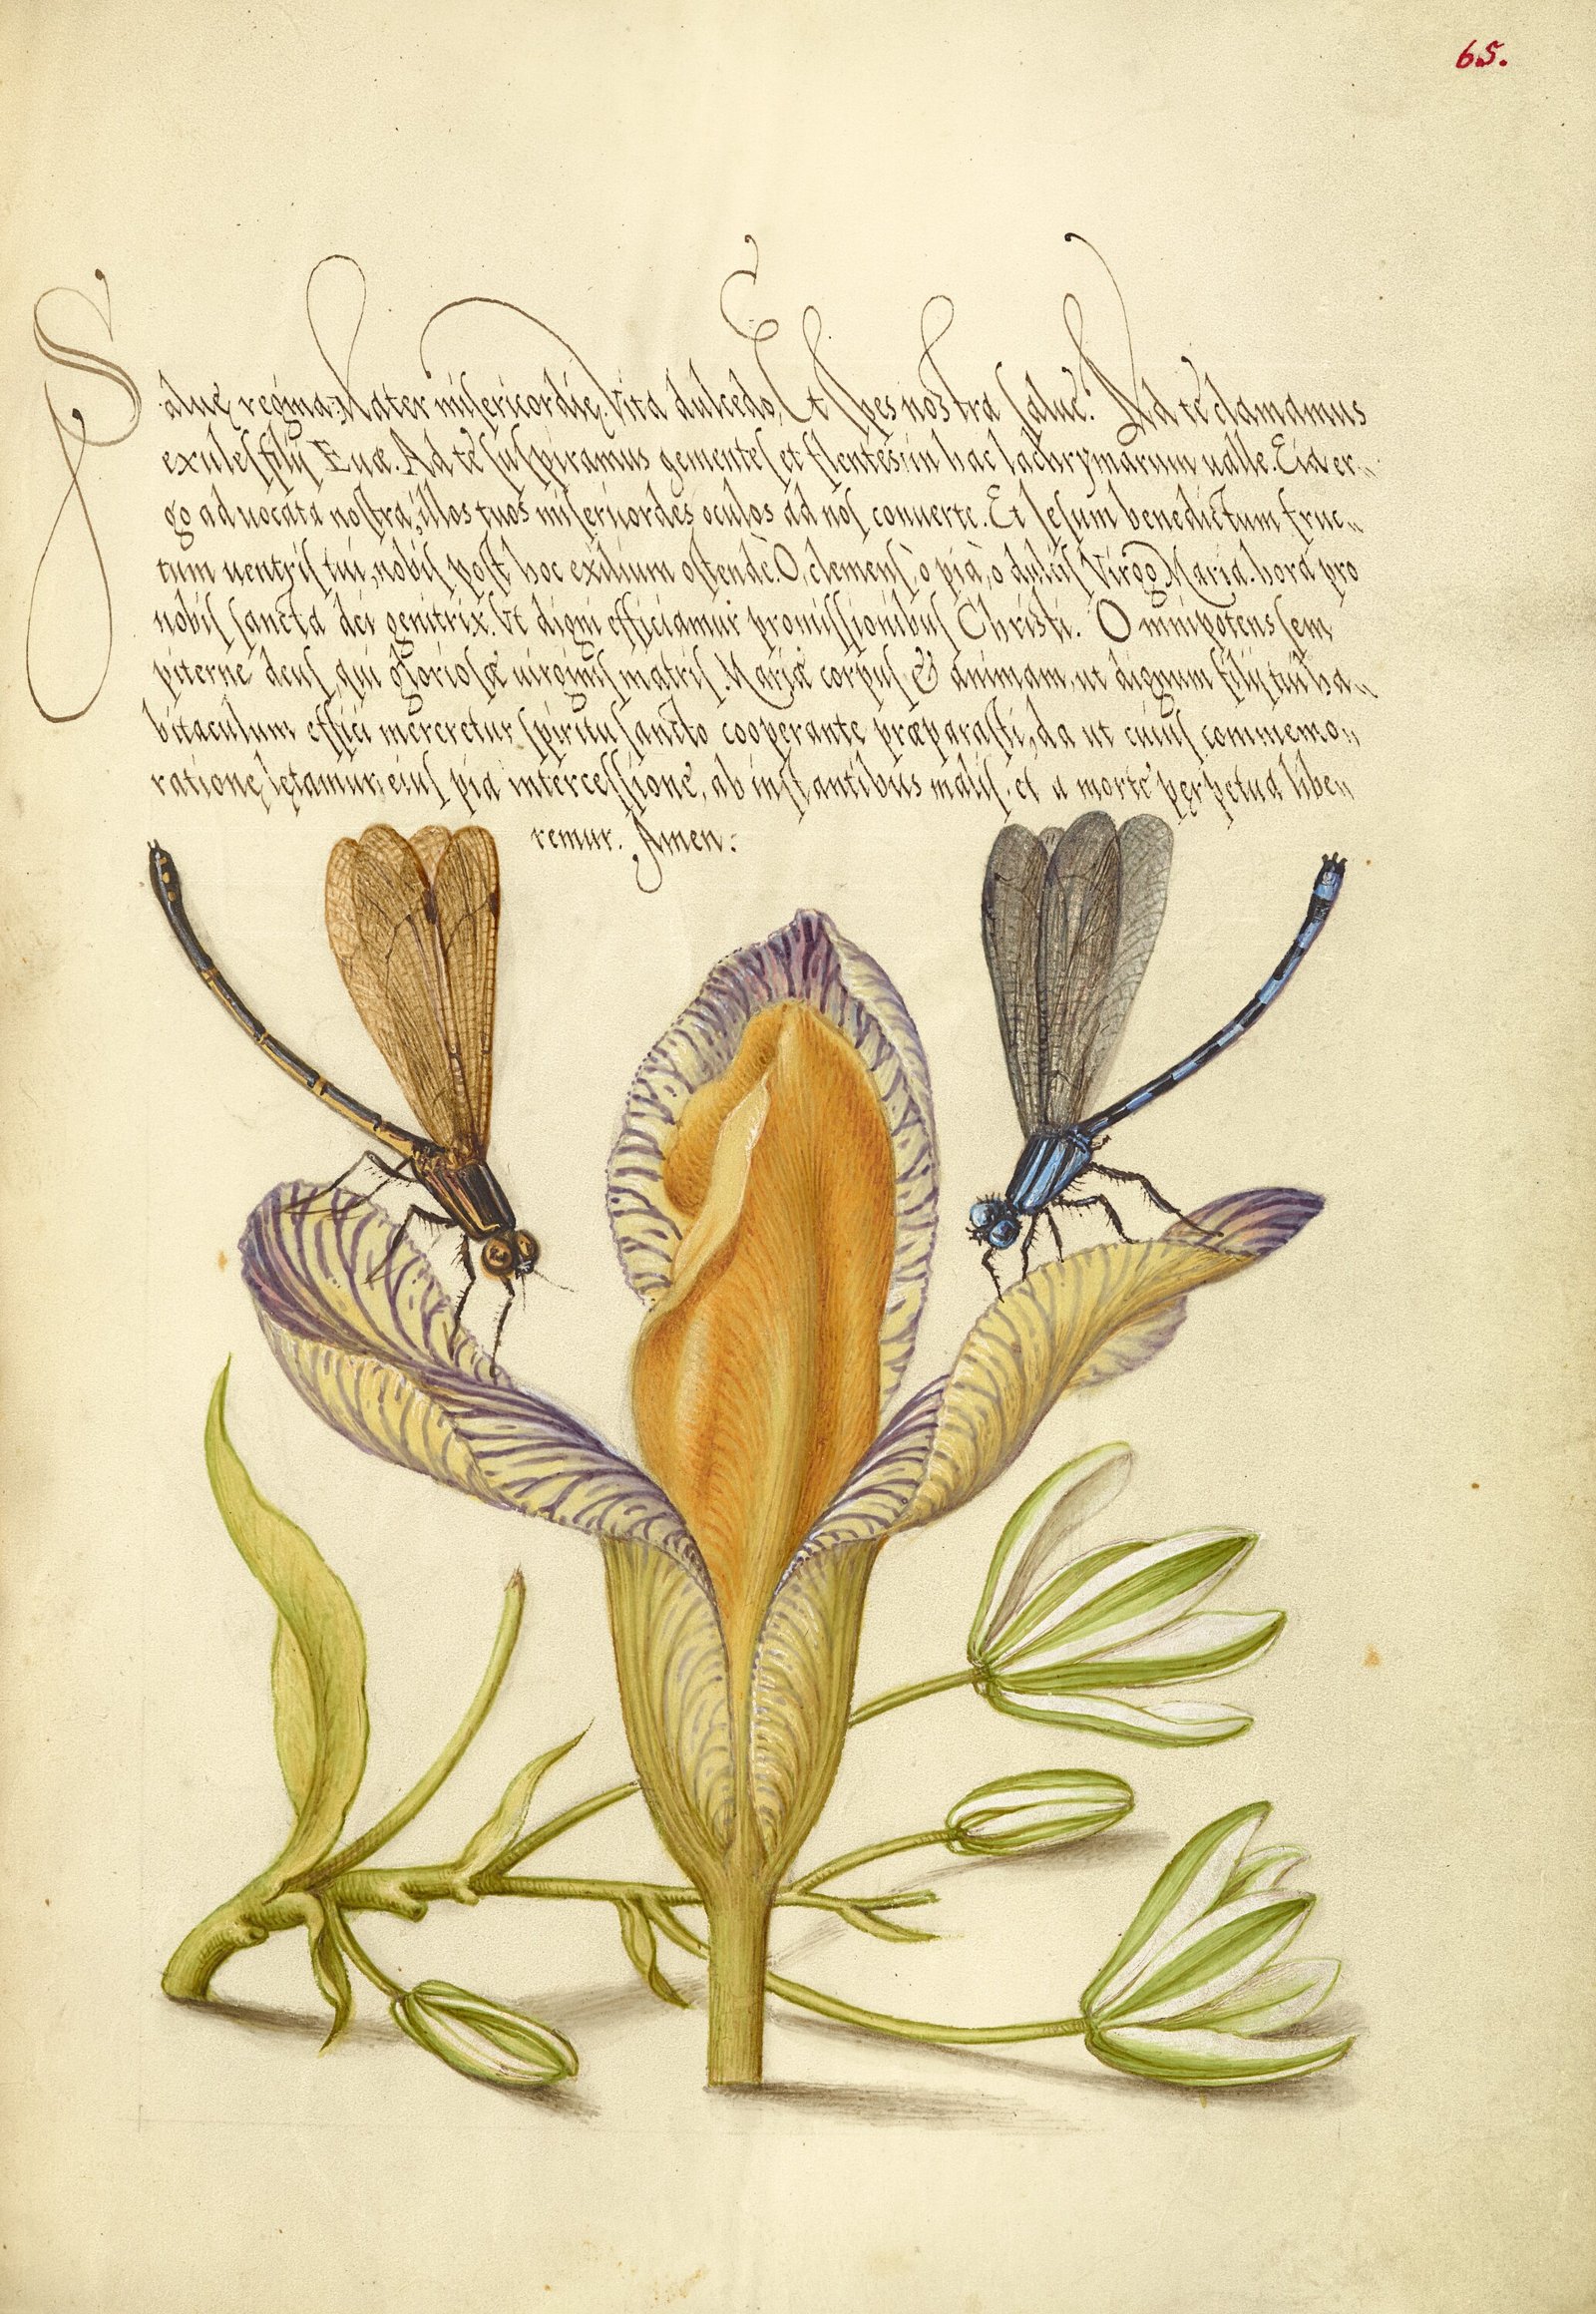 65.
Salue regina. Mater misericordię. Vita dulcedo, Et spes nostra salue. Ad te clamamus
exules filij Euæ. Ad te suspiramus gementes et flentes, in hac lachrymarum ualle. Eia er„
go aduocata nostra, illos tuos misericordes oculos ad nos conuerte. Et Iesum benedictum fruc„
tum uentris tui, nobis post hoc exilium ostende. O, clemens, ò pia, ò dulcis Virgo Maria. hora pro
nobis sancta dei genitrix. Vt digni efficiamur promissionibus Christi. Omnipotens sem
piterne deus, qui gloriosæ uirginis matris Mariæ corpus & animam, ut dignum filij tui ha„
bitaculum effici mereretur spiritu sancto cooperante præparasti, da ut cuius commemo„
ratione lętamur, eius pia intercessione, ab instantibus malis, et a morte perpetua libe„
remur. Amen: